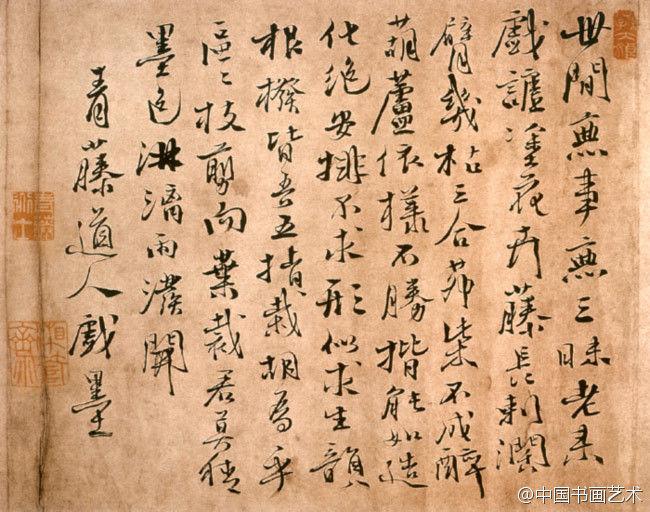 世間無事無三昧老来
戲謔塗花卉藤長刺闊
臂幾枯三合茆柴不成醉
葫蘆依樣不勝揩能如造
化絕安排不求形似求生韻
根撥皆吾五指栽胡為乎
區〻枝剪而葉裁君莫猜
墨色淋漓雨潑開
青藤道人戲墨
@中国书画艺术